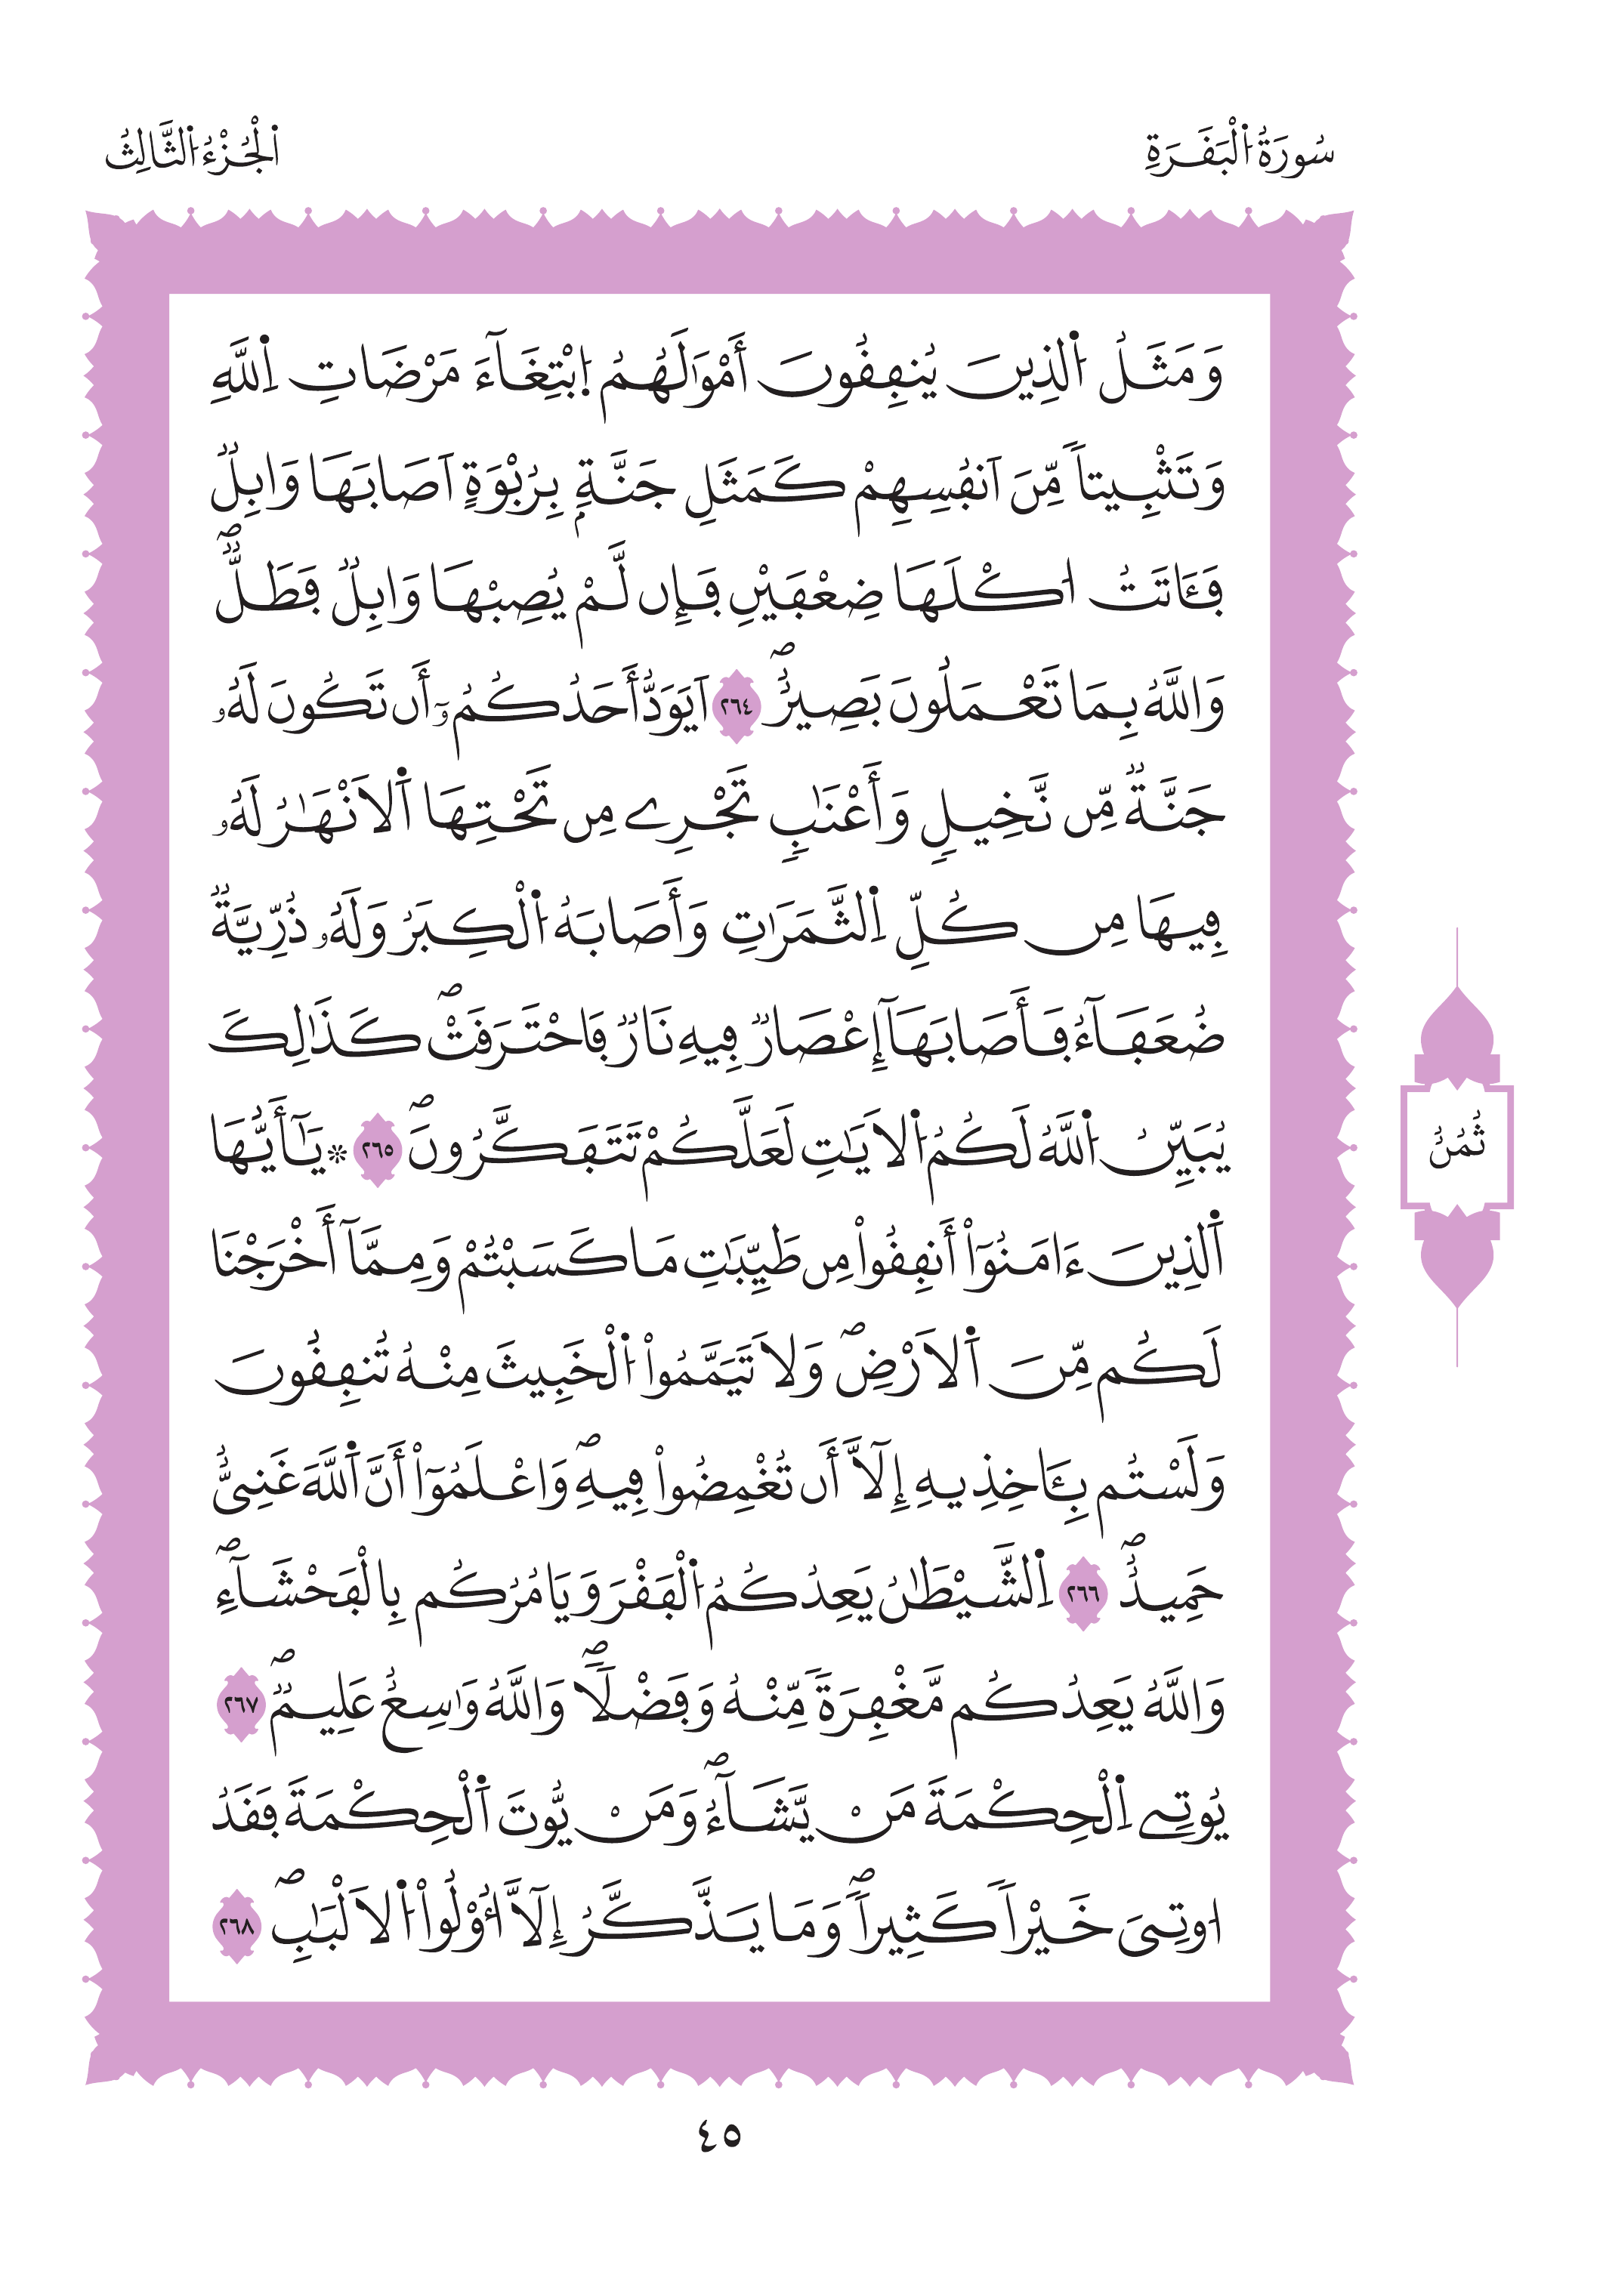 سُورَةُ اُ۬لْبَقَرَةِ
اَ۬لْجُزْءُ اُ۬لثَّالِثُ
وَمَثَلُ اُ۬لذِينَ يُنفِقُونَ أَمْوَٰلَهُمُ اُ۪بْتِغَآءَ مَرْضَاتِ اِ۬للَّهِ
وَتَثْبِيتاٗ مِّنَ اَنفُسِهِمْ كَمَثَلِ جَنَّةِۢ بِرُبْوَةٍ اَصَابَهَا وَابِلٞ
فَـَٔاتَتُ ا۟كْلَهَا ضِعْفَيْنِ فَإِن لَّمْ يُصِبْهَا وَابِلٞ فَطَلّٞۖ
وَاللَّهُ بِمَا تَعْمَلُونَ بَصِيرٌۖ ٢٦٤ اَيَوَدُّ أَحَدُكُمُۥٓ أَن تَكُونَ لَهُۥ
جَنَّةٞ مِّن نَّخِيلٖ وَأَعْنَٰبٖ تَجْرِے مِن تَحْتِهَا اَ۬لَانْهَٰرُ لَهُۥ
فِيهَا مِن كُلِّ اِ۬لثَّمَرَٰتِ وَأَصَابَهُ اُ۬لْكِبَرُ وَلَهُۥ ذُرِّيَّةٞ
ضُعَفَآءُ فَأَصَابَهَآ إِعْصَارٞ فِيهِ نَارٞ فَاحْتَرَقَتْۖ كَذَٰلِكَ
يُبَيِّنُ اُ۬للَّهُ لَكُمُ اُ۬لَايَٰتِ لَعَلَّكُمْ تَتَفَكَّرُونَۖ ٢٦٥ ۞ يَٰٓأَيُّهَا
اَ۬لذِينَ ءَامَنُوٓاْ أَنفِقُواْ مِن طَيِّبَٰتِ مَا كَسَبْتُمْ وَمِمَّآ أَخْرَجْنَا
لَكُم مِّنَ اَ۬لَارْضِۖ وَلَا تَيَمَّمُواْ اُ۬لْخَبِيثَ مِنْهُ تُنفِقُونَ
وَلَسْتُم بِـَٔاخِذِيهِ إِلَّآ أَن تُغْمِضُواْ فِيهِۖ وَاعْلَمُوٓاْ أَنَّ اَ۬للَّهَ غَنِيٌّ
حَمِيدٌۖ ٢٦٦ اِ۬لشَّيْطَٰنُ يَعِدُكُمُ اُ۬لْفَقْرَ وَيَامُرُكُم بِالْفَحْشَآءِۖ
وَاللَّهُ يَعِدُكُم مَّغْفِرَةٗ مِّنْهُ وَفَضْلاٗۖ وَاللَّهُ وَٰسِعٌ عَلِيمٞۖ ٢٦٧
يُوتِے اِ۬لْحِكْمَةَ مَنْ يَّشَآءُۖ وَمَنْ يُّوتَ اَ۬لْحِكْمَةَ فَقَدُ
ا۟وتِيَ خَيْراٗ كَثِيراٗۖ وَمَا يَذَّكَّرُ إِلَّآ أُوْلُواْ اُ۬لَالْبَٰبِۖ ٢٦٨
ثُمُنٌ
٤٥